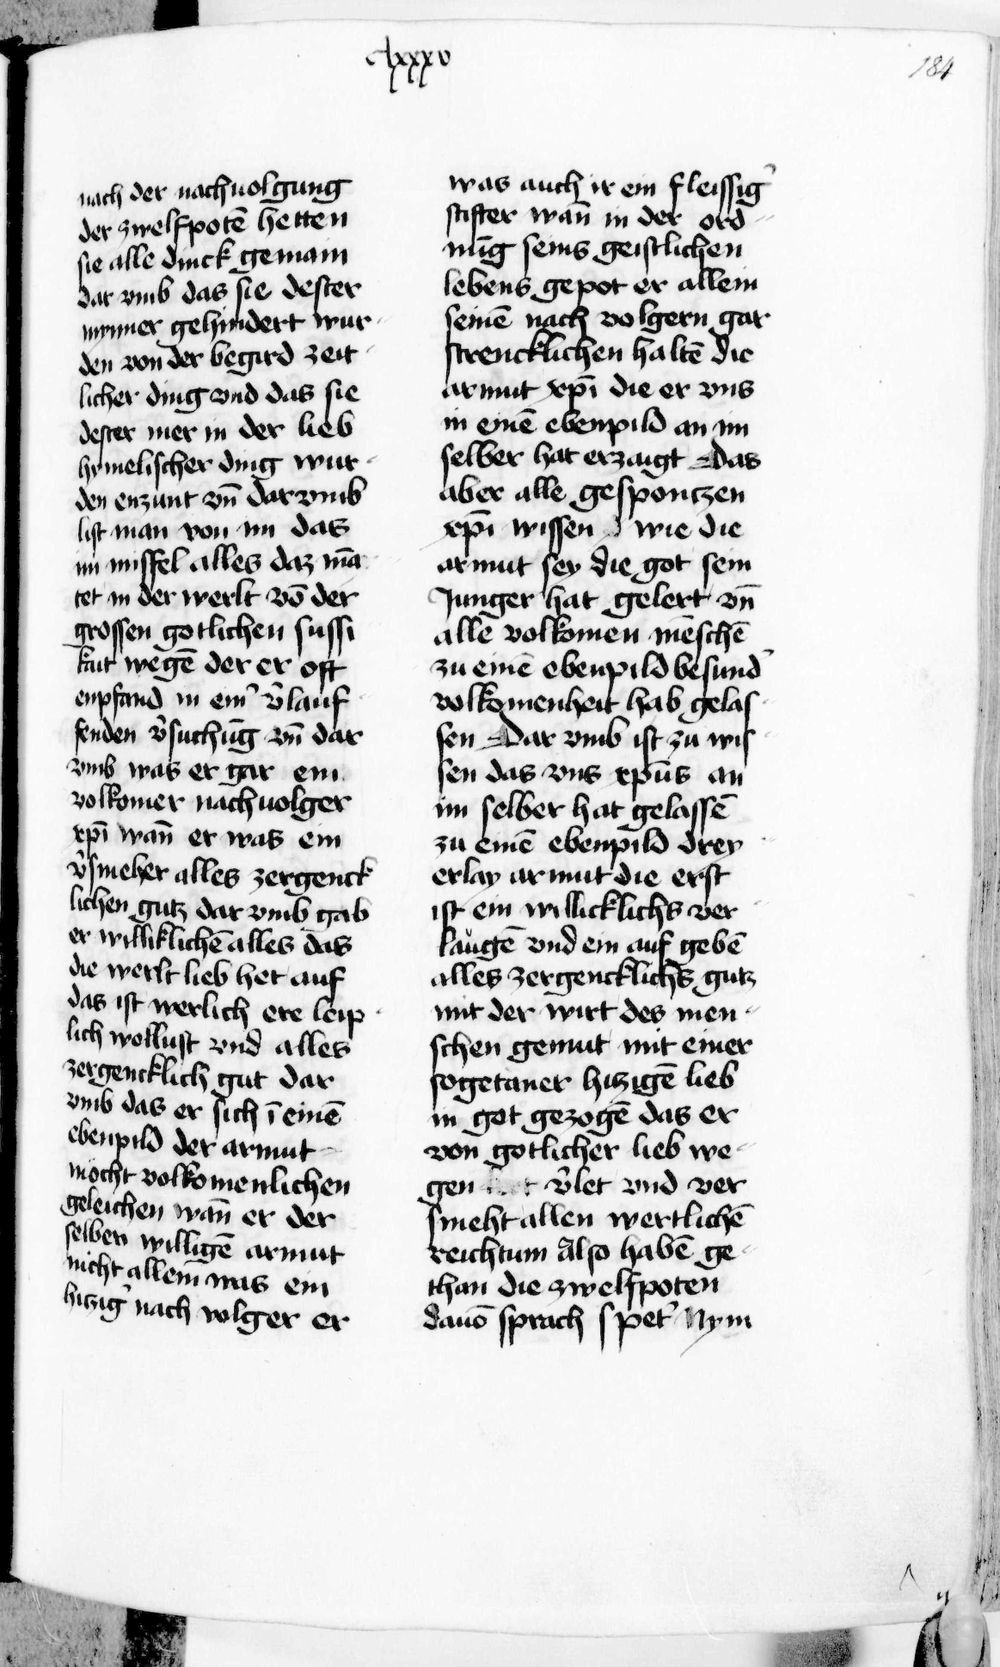 clxxxv
184
nach der nachuolgung
der zwelfpotē hetten
sie alle dinck gemain
dar vmb das sie dester
mynner gehindert wur
den von der begird zeit
licher ding vnd das sie
dester mer in der lieb
hymelischer ding wur
den enzunt vn̄ dar vmb
list man von im das
im missfel alles daz mā
tet in der werlt vō der
grossen gotlichen sussi
kait wegē der er oft
enpfand in ein᷑ v̉lauf
fenden v̉suchūg vn̄ dar
vmb was er gar ein
volkomer nachuolger
xp̄i wan̄ er was ein
v̉smeher alles zergenck
lichen gutz dar vmb gab
er williklichē alles das
die werlt lieb het auf
das ist werlich ere leip
lich wollust vnd alles
zergencklich gut dar
vmb das er sich ī einē
ebenpild der armut
mocht volkomenlichen
geleichen wan̄ er der
selben willigē armut
nicht allein was ein
hitzig᷑ nach volger er
was auch ir ein fleissig᷑
stifter wan̄ in der ord
nūg seins geistlichen
lebens gepot er allein
seinē nach volgern gar
strencklichen haltē die
armut xp̄i die er vns
in einē ebenpild an im
selber hat erzaigt Das
aber alle gespontzen
xp̄i wissen wie die
armut sey die got sein
Junger hat gelert vn̄
alle volkomen mēschē
zu einē ebenpild besund᷑
volkomenheit hab gelas
sen Dar vmb ist zu wis
sen das vns xp̄us an
im selber hat gelassē
zu einē ebenpild drey
erlay armut die erst
ist ein willicklichs ver
laugē vnd ein auf gebē
alles zergencklichs gutz
mit der wirt des men
schen gemut mit einer
sogetaner hitzigē lieb
in got gezogē das er
von gotlicher lieb we
gen v̉let vnd ver
smeht allen wertlichē
reichtum Also habē ge
than die zwelfpoten
dauō sprach s pet᷑ Nym